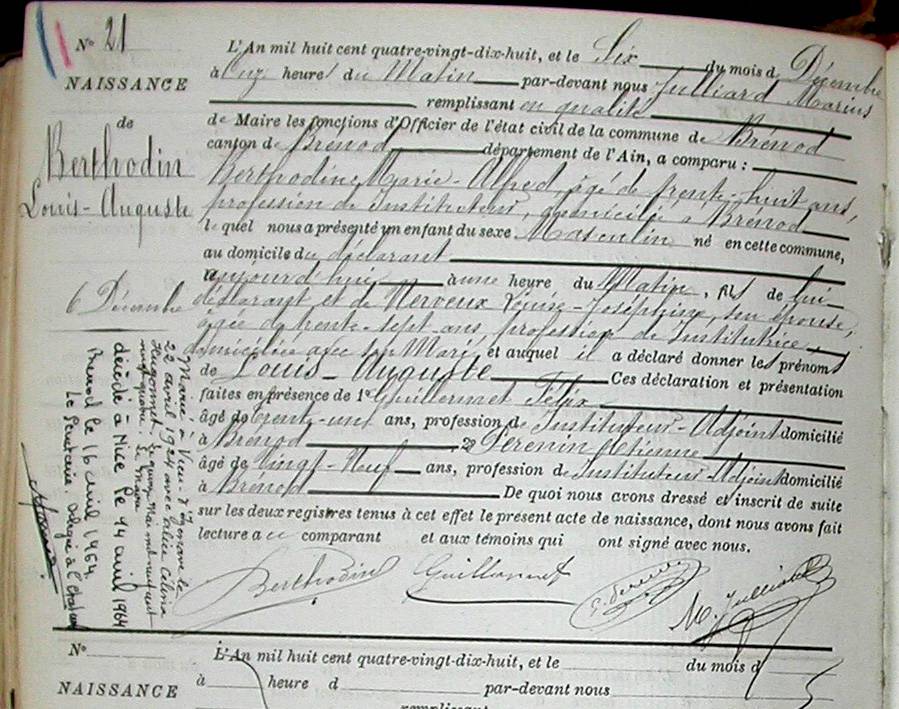 N° 21
NAISSANCE
de
Berthodin
Louis-Auguste
6 Décembre
L'An mil huit cent quatre-vingt-dix-huit, et le Six du mois d Décembre
à Onze heures du Matin par-devant nous Julliard Marius
remplissant en qualité
de Maire les fonctions d'Officier de l'état civil de la commune de Brénod
canton de Brénod département de l'Ain, a comparu :
Berthodin, Marie-Alfred, âgé de trente-huit ans,
profession de Instituteur, domicilié à Brénod
lequel nous a présenté un enfant du sexe Masculin né en cette commune,
au domicile du déclarant
aujourd'hui à une heure du Matin, fils de lui-
déclarant et de Nerveux Louise-Joséphine, son épouse,
âgée de trente-sept ans, profession de Institutrice
domiciliée avec son Mari et auquel il a déclaré donner les prénoms
de Louis-Auguste Ces déclaration et présentation
faites en présence de 1° Guillermet Félix
âgé de trente-un ans, profession de Instituteur-Adjoint domicilié
à Brénod 2° Etienne
âgé de Vingt-Neuf ans, profession de Instituteur-Adjoint domicilié
à Brénod De quoi nous avons dressé et inscrit de suite
sur les deux registres tenus à cet effet le présent acte de naissance, dont nous avons fait
lecture au comparant et aux témoins qui ont signé avec nous.
Berthodin Guillermet M. Julliard
Marié à Vieu-d'Izenave le
22 avril 1924 avec Célina
décédé à Nice le 14 avril 1964
Brenod le 16 avril 1964
Le Secrétaire
N°
NAISSANCE
L'An mil huit cent quatre-vingt-dix-huit, et le du mois d
à heure d par-devant nous
remplissant